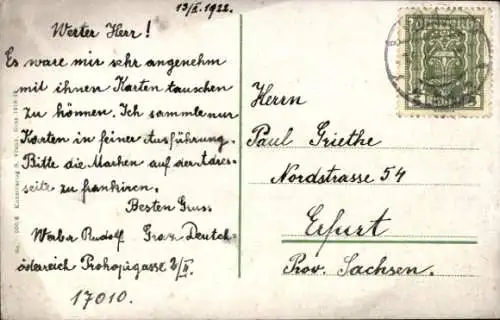 13/II. 1922.
Werter Herr!
Es wäre mir sehr angenehm
mit ihnen Karten tauschen
zu können. Ich sammle nur
Karten in feiner Ausführung.
Bitte die Marken auf der Adres-
seite zu frankiren.
Besten Gruss
Rudolf Graz Deutsch-
österreich Prokopigasse 2/II.
17010.
Herrn
Paul Griethe
Nordstrasse 54
Erfurt
Prov. Sachsen.